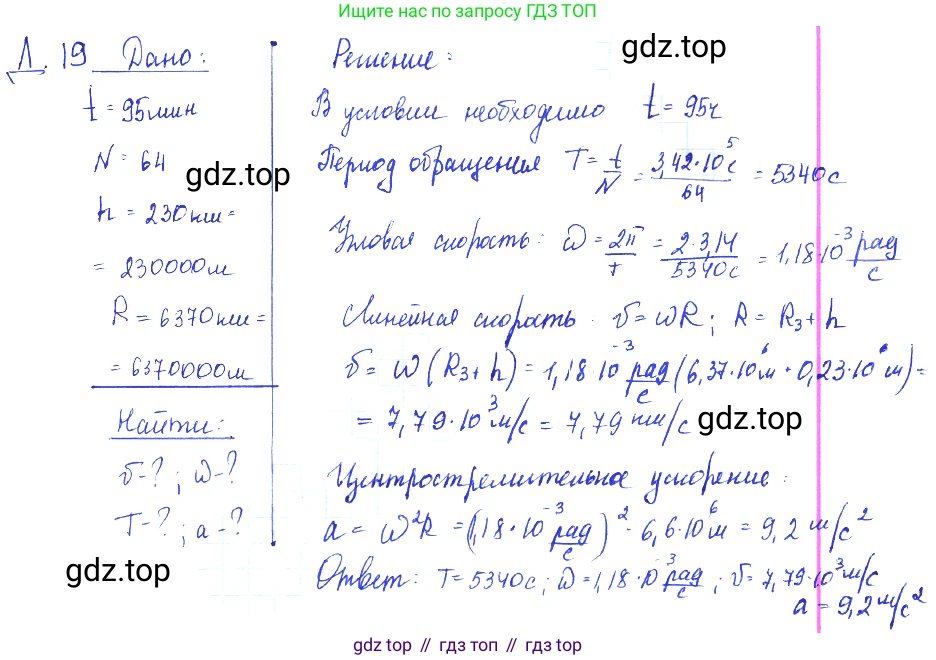 Ищите нас по запросу ГДЗ ТОП
Л. 19 Дано:
t = 95мин
N = 64
h = 230км =
= 230000м
R = 6370км =
= 6370000м
Найти:
v-? ; ω-?
T-? ; a-?
Решение:
gdz.top
В условии необходимо t = 95ч
Период обращения T = t/N = 3,42·10⁵с/64 = 5340с
gdz.top
Угловая скорость: ω = 2π/T = 2·3,14/5340с = 1,18·10⁻³ рад/с
Линейная скорость. v = ωR ; R = Rз + h
v = ω (Rз + h) = 1,18·10⁻³ рад/с (6,37·10⁶м + 0,23·10⁶м) =
= 7,79·10³м/с = 7,79 км/с
gdz.top
Центростремительное ускорение:
a = ω²R = (1,18·10⁻³ рад/с)² · 6,6·10⁶м = 9,2 м/с²
gdz.top
Ответ: T = 5340с ; ω = 1,18·10⁻³ рад/с ; v = 7,79·10³м/с
a = 9,2 м/с²
gdz top // гдз топ // gdz top